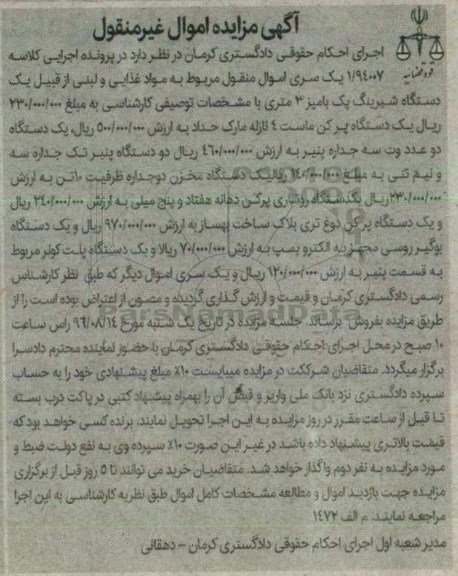 آگهی مزایده اموال غیرمنقول
قوه قضائیه
اجرای احکام حقوقی دادگستری کرمان در نظر دارد در پرونده اجرایی کلاسه
۱/۹۴۰۰۷ یک سری اموال منقول مربوط به مواد غذایی و لبنی از قبیل یک
دستگاه شیرینگ پک بامیز ۳ متری با مشخصات توصیفی کارشناسی به مبلغ ۲۳۰/۰۰۰/۰۰۰
ریال یک دستگاه پر کن ماست ۴ نازله مارک حداد به ارزش ۵۰۰/۰۰۰/۰۰۰ ریال، یک دستگاه
دو عدد وت سه جداره پنیر به ارزش ۴۶۰/۰۰۰/۰۰۰ ریال دو دستگاه پنیر تک جداره سه
و نیم تنی به مبلغ ۱۴۰/۰۰۰/۰۰۰ ریالیک دستگاه مخزن دوجداره ظرفیت ۱۰تن به ارزش
۲۳۰/۰۰۰/۰۰۰ ریال یکدستگاه روتاری پرکن دهانه هفتاد و پنج میلی به ارزش ۲۴۰/۰۰۰/۰۰۰ ریال
و یک دستگاه پر کن دوغ تری بلاک ساخت بهساز به ارزش ۹۷۰/۰۰۰/۰۰۰ ریال و یک دستگاه
بوگیر روسی مجهز به الکترو پمپ به ارزش ۷۰/۰۰۰/۰۰۰ ریالا و یک دستگاه پلت کولر مربوط
به قسمت پنیر به ارزش ۱۲۰/۰۰۰/۰۰۰ ریال و یک سری اموال دیگر که طبق نظر کارشناس
رسمی دادگستری کرمان و قیمت و ارزش گذاری گردیده و مصون از اعتراض بوده است را از
طریق مزایده بفروش برساند. جلسه مزایده در تاریخ یک شنبه مورخ ۹۶/۰۸/۱۴ راس ساعت
۱۰ صبح در محل اجرای احکام حقوقی دادگستری کرمان با حضور نماینده محترم دادسرا
برگزار میگردد. متقاضیان شرککت در مزایده میبایست ۱۰٪ مبلغ پیشنهادی خود را به حساب
سپرده دادگستری نزد بانک ملی واریز و قبض آن را بهمراه پیشنهاد کتبی در پاکت درب بسته
تا قبل از ساعت مقرر در روز مزایده به این اجرا تحویل نمایند. برنده کسی خواهد بود که
قیمت بالاتری پیشنهاد داده باشد در غیر این صورت ۱۰٪ سپرده وی به نفع دولت ضبط و
مورد مزایده به نفر دوم واگذار خواهد شد. متقاضیان خرید می توانند تا ۵ روز قبل از برگزاری
مزایده جهت بازدید اموال و مطالعه مشخصات کامل اموال طبق نظریه کارشناسی به این اجرا
مراجعه نمایند. م الف ۱۴۷۲
مدیر شعبه اول اجرای احکام حقوقی دادگستری کرمان - دهقانی
ParsNamadData